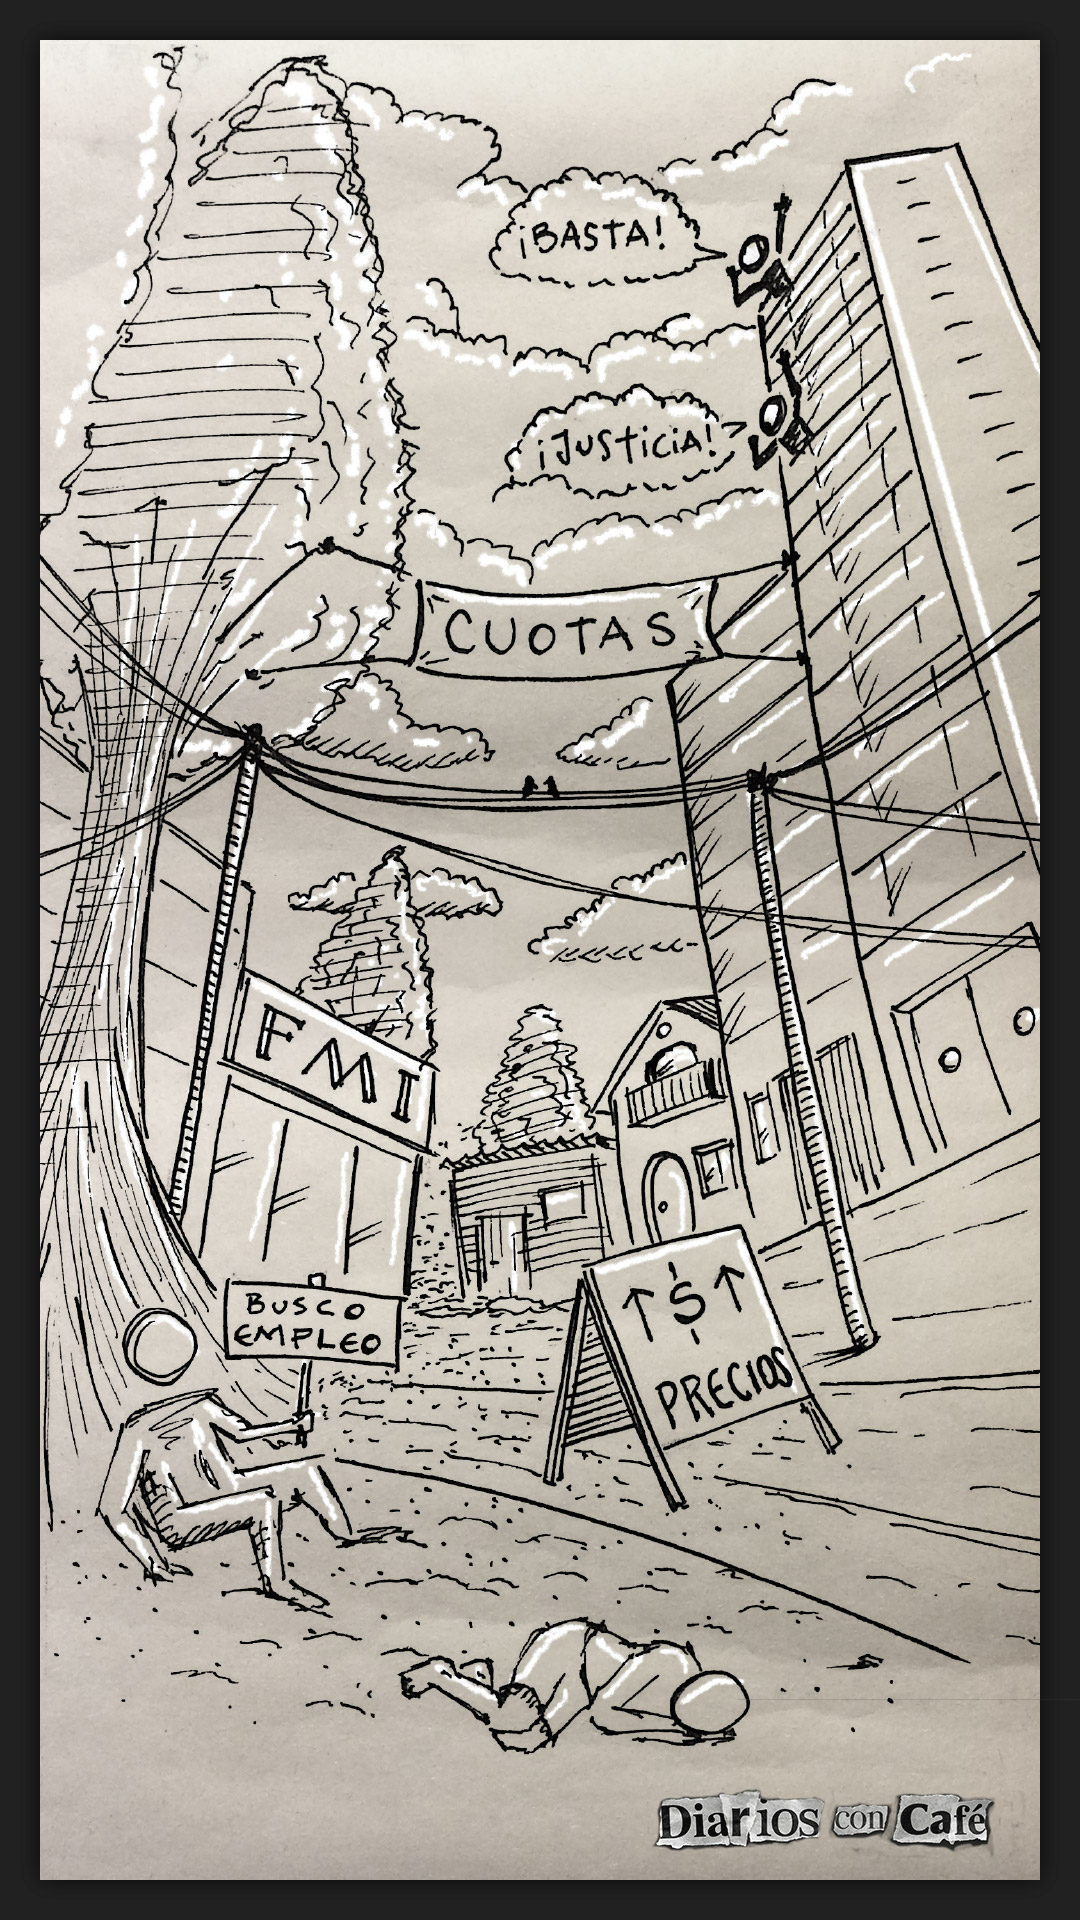 ¡BASTA!
¡JUSTICIA!
CUOTAS
FMI
BUSCO
EMPLEO
↑ $ ↑
PRECIOS
Diarios con Café